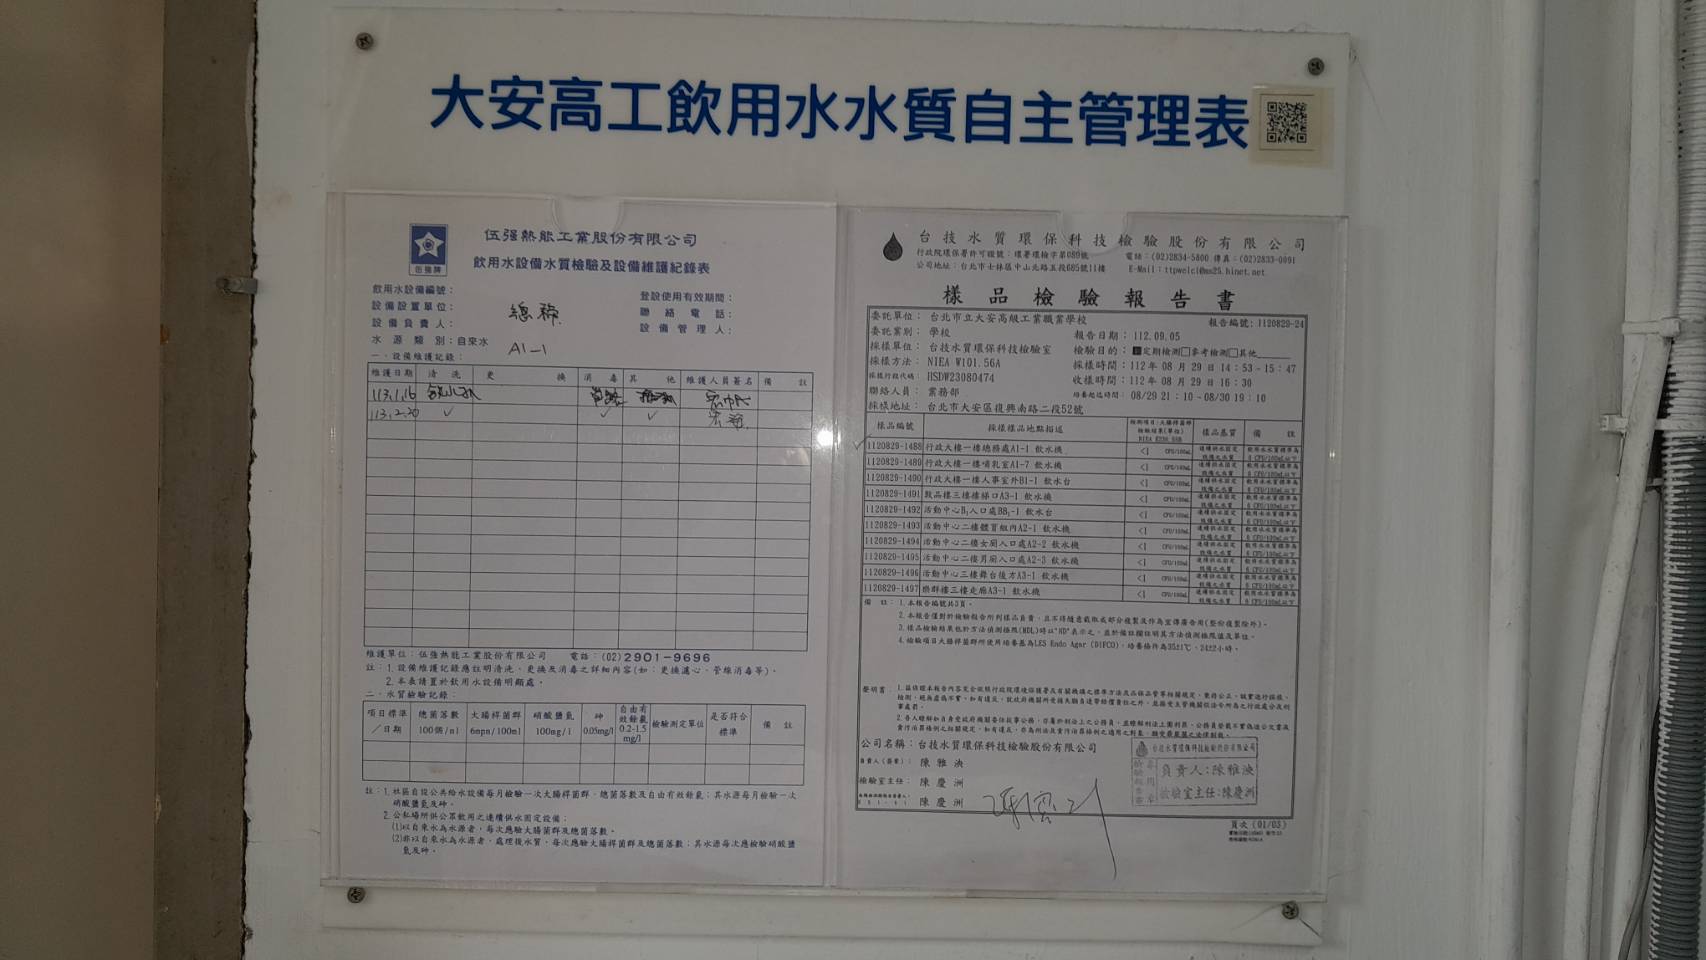 大安高工飲用水水質自主管理表
伍強牌
伍强熱能工業股份有限公司
飲用水設備水質檢驗及設備維護紀錄表
飲用水設備編號：
設備設置單位：
設備負責人：
水源類別：自來水
總務
A1-1
登設使用有效期間：
聯絡電話：
設備管理人：
一、設備維護記錄：
維護日期 清洗 更換 消毒 其他 維護人員簽名 備註
113.1.16
113.2.20 ✓ ✓ ✓
維護單位：伍强熱能工業股份有限公司 電話：(02)2901-9696
註：1.設備維護記錄應註明清洗、更換及消毒之詳細內容(如：更換濾心、管線消毒等)。
2.本表請置於飲用水設備明顯處。
二、水質檢驗記錄：
項目標準／日期 總菌落數 100個/ml 大腸桿菌群 6mpn/100ml 硝酸鹽氮 100mg/l 砷 0.05mg/l 自由有效餘氯 0.2-1.5 mg/l 檢驗測定單位 是否符合標準 備註
註：1.社區自設公共給水設備每月檢驗一次大腸桿菌群、總菌落數及自由有效餘氯；其水源每月檢驗一次
硝酸鹽氮及砷。
2.公私場所供公眾飲用之連續供水固定設備：
(1)以自來水為水源者，每次應驗大腸菌群及總菌落數。
(2)非以自來水為水源者，處理後水質，每次應驗大腸桿菌群及總菌落數；其水源每次應檢驗硝酸鹽
氮及砷。
台技水質環保科技檢驗股份有限公司
行政院環保署許可證號：環署環檢字第089號
公司地址：台北市士林區中山北路五段685號11樓
電話：(02)2834-5800 傳真：(02)2833-0091
E-Mail：ttpwelci@ms25.hinet.net
樣品檢驗報告書
委託單位：台北市立大安高級工業職業學校 報告編號：1120829-24
委託業別：學校 報告日期：112.09.05
採樣單位：台技水質環保科技檢驗室 檢驗目的：■定期檢測□參考檢測□其他
採樣方法：NIEA W101.56A 採樣時間：112年08月29日14：53-15：47
採樣行程代碼：HSDW23080474 收樣時間：112年08月29日16：30
聯絡人員：業務部 培養起迄時間：08/29 21：10～08/30 19：10
採樣地址：台北市大安區復興南路二段52號
樣品編號 採樣樣品地點描述 樣品基質 備註
1120829-1488 行政大樓一樓總務處A1-1 飲水機 <1 CFU/100mL
1120829-1489 行政大樓一樓哺乳室A1-7 飲水機 <1 CFU/100mL
1120829-1490 行政大樓一樓人事室外B1-1 飲水台 <1 CFU/100mL
1120829-1491 敦品樓三樓樓梯口A3-1 飲水機 <1 CFU/100mL
1120829-1492 活動中心B1入口處BB1-1 飲水台 <1 CFU/100mL
1120829-1493 活動中心二樓體育組內A2-1 飲水機 <1 CFU/100mL
1120829-1494 活動中心二樓女廁入口處A2-2 飲水機 <1 CFU/100mL
1120829-1495 活動中心二樓男廁入口處A2-3 飲水機 <1 CFU/100mL
1120829-1496 活動中心三樓舞台後方A3-1 飲水機 <1 CFU/100mL
1120829-1497 樂群樓三樓走廊A3-1 飲水機 <1 CFU/100mL
備註：1.本報告編號共3頁。
2.本報告僅對於檢驗報告所列樣品負責，且不得隨意截取或部分複製及作為宣傳廣告用(整份複製除外)。
3.樣品檢驗結果低於方法偵測極限(MDL)時以"ND"表示之，並於備註欄註明其方法偵測極限值及單位。
4.檢驗項目大腸桿菌群所使用培養基為LES Endo Agar (DIFCO)，培養條件為35±1℃、24±2小時。
公司名稱：台技水質環保科技檢驗股份有限公司
陳雅泱
檢驗室主任：陳慶洲
陳慶洲
台技水質環保科技檢驗股份有限公司
負責人：陳雅泱
檢驗室主任：陳慶洲
頁次(01/03)